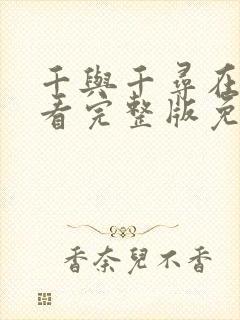 千與千尋在
看完整版免
香奈兒不香